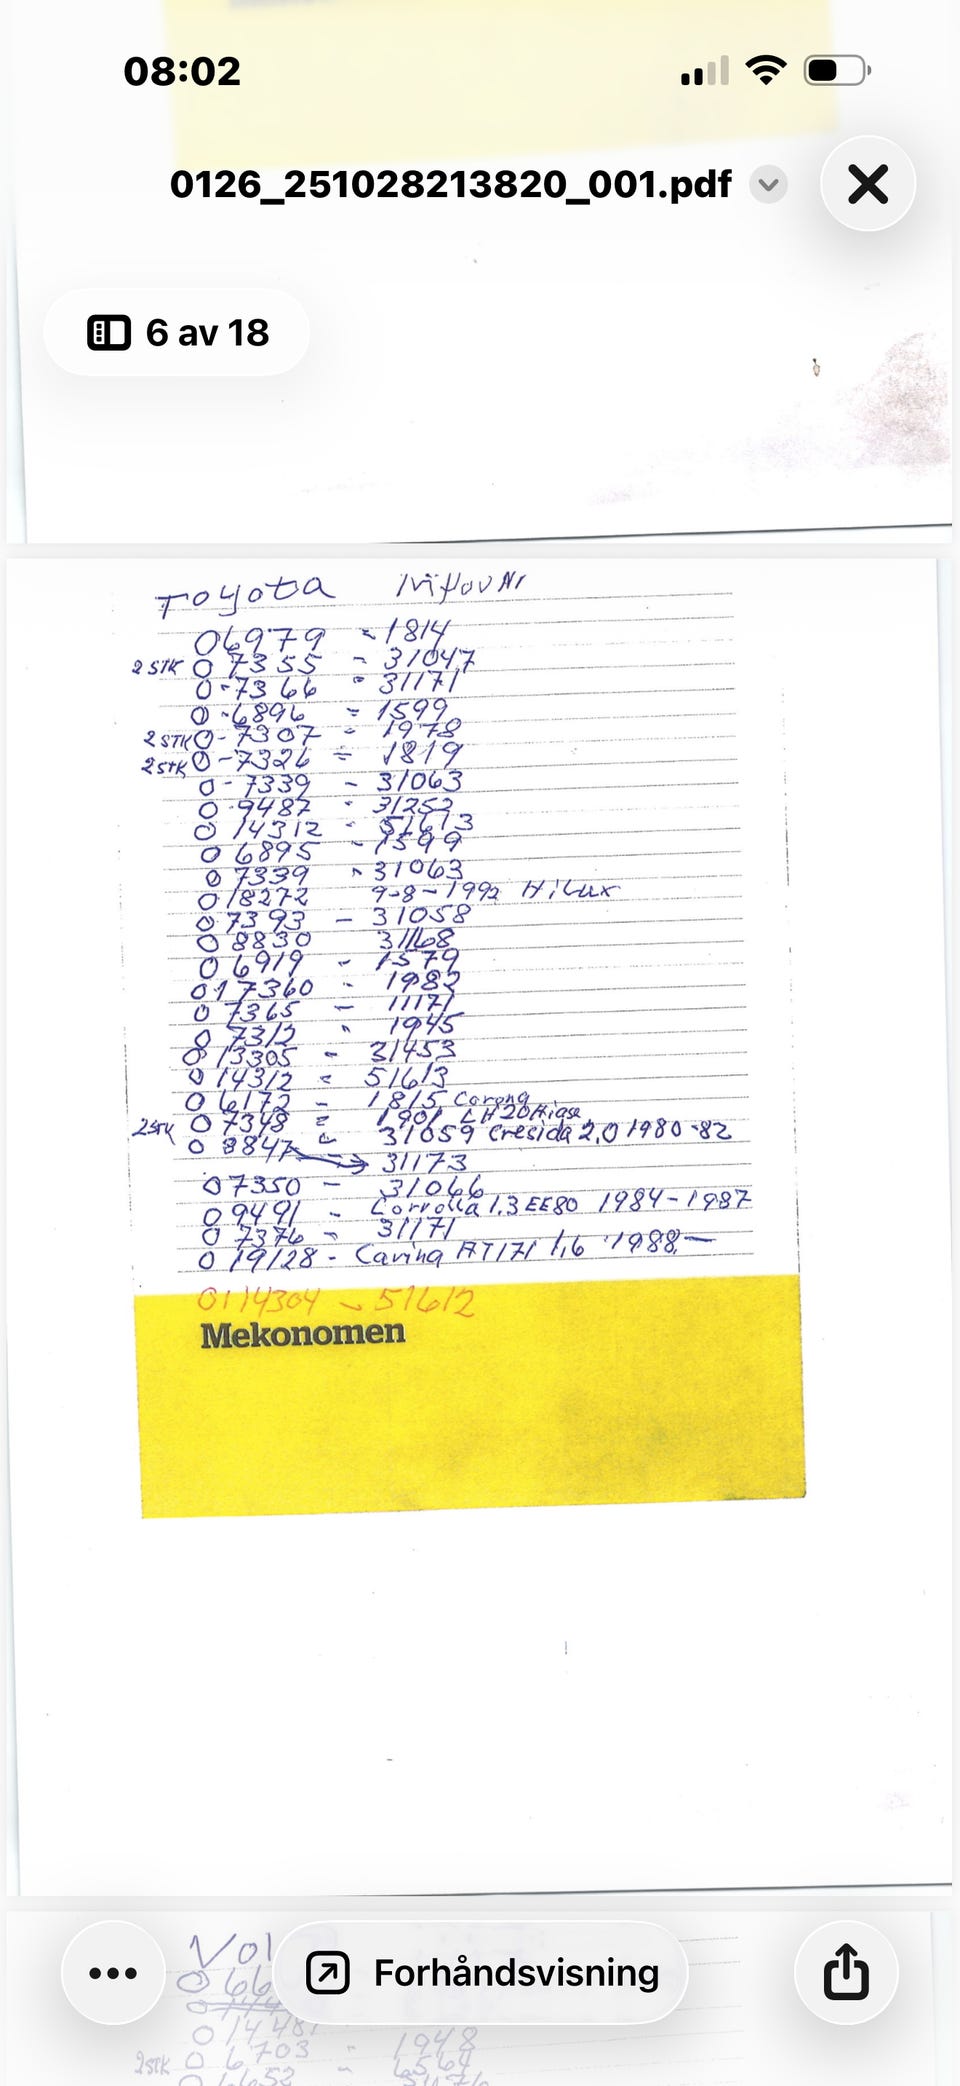 08:02
0126_251028213820_001.pdf
6 av 18
Toyota Nr
06979 = 1814
2 STK 0 7355 - 31047
0-7366 = 31171
0-6896 = 1599
2 STK 0-7307 - 1978
2 STK 0-7326 = 1819
0-7339 - 31063
0-9487 - 31252
0 14312 - 51613
0 6895 - 1599
0 7339 - 31063
0 18272 9-8-1992 HiLux
0 7393 - 31058
0 8830 31168
0 6919 - 1579
017360 - 1982
0 7365 - 11171
0 7312 " 1945
0 13305 - 31453
0 14312 = 51613
0 6172 - 1815 Carona
2 STK 0 7348 = 1901 LH20 Hiase
0 8847 = 31059 Cresida 2,0 1980-82
31173
07350 - 31066
0 9491 - Corrolla 1.3 EE80 1984-1987
0 7376 - 31171
0 19128 - Carina AT171 1,6 1988-
0114304 - 51612
Mekonomen
Vol
0 66
0 1448
0 6703 - 1948
2 STK
Forhåndsvisning